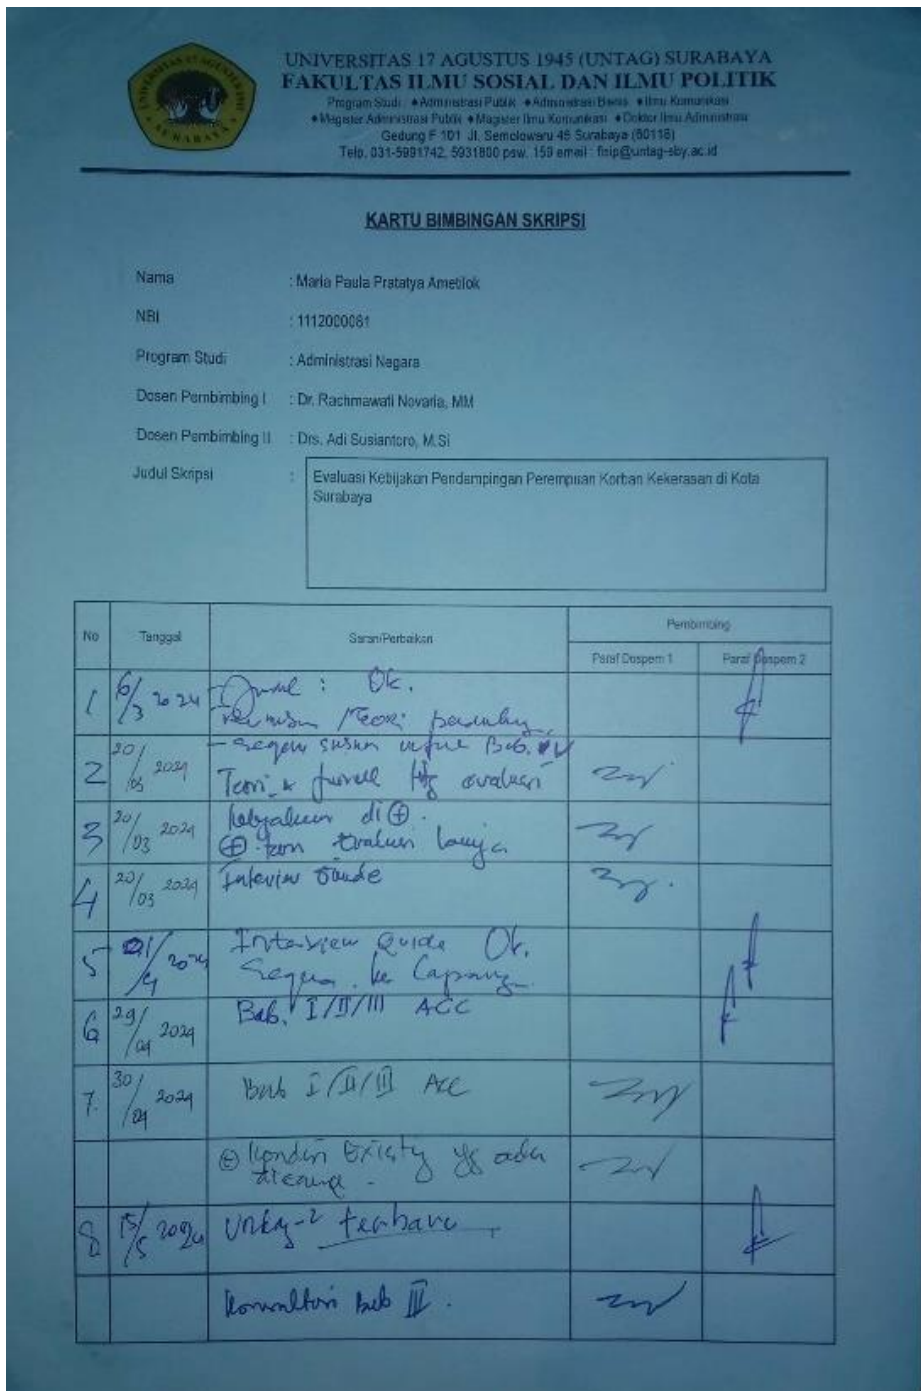 UNIVERSITAS 17 AGUSTUS 1945 (UNTAG) SURABAYA
FAKULTAS ILMU SOSIAL DAN ILMU POLITIK
Program Studi : ♦Administrasi Publik ♦Administrasi Bisnis ♦Ilmu Komunikasi
♦Magister Administrasi Publik ♦Magister Ilmu Komunikasi ♦Doktor Ilmu Administrasi
Gedung F 101 Jl. Semolowaru 45 Surabaya (60118)
Telp. 031-5991742, 5931800 psw. 159 email : fisip@untag-sby.ac.id
KARTU BIMBINGAN SKRIPSI
Nama : Maria Paula Pratatya Ametilok
NBI : 1112000081
Program Studi : Administrasi Negara
Dosen Pembimbing I : Dr. Rachmawati Novaria, MM
Dosen Pembimbing II : Drs. Adi Susiantoro, M.Si
Judul Skripsi : Evaluasi Kebijakan Pendampingan Perempuan Korban Kekerasan di Kota
Surabaya
No Tanggal Saran/Perbaikan Pembimbing
Paraf Dospem 1 Paraf Dospem 2
1 6/3 2024 - Judul : Ok.
Teori
2 20/03 2024 - Segera susun Bab.
Teori evaluasi
3 20/03 2024 di ⊕.
⊕ teori
4 20/03 2024 Interview Guide
5 2024 Interview Guide Ok.
Segera ke
6 29/04 2024 Bab. I/II/III ACC
7. 30/04 2024 Bab I/II/III Acc
⊕ Kondisi Existing yg ada
8 15/5 2024 terbaru
Konsultasi Bab